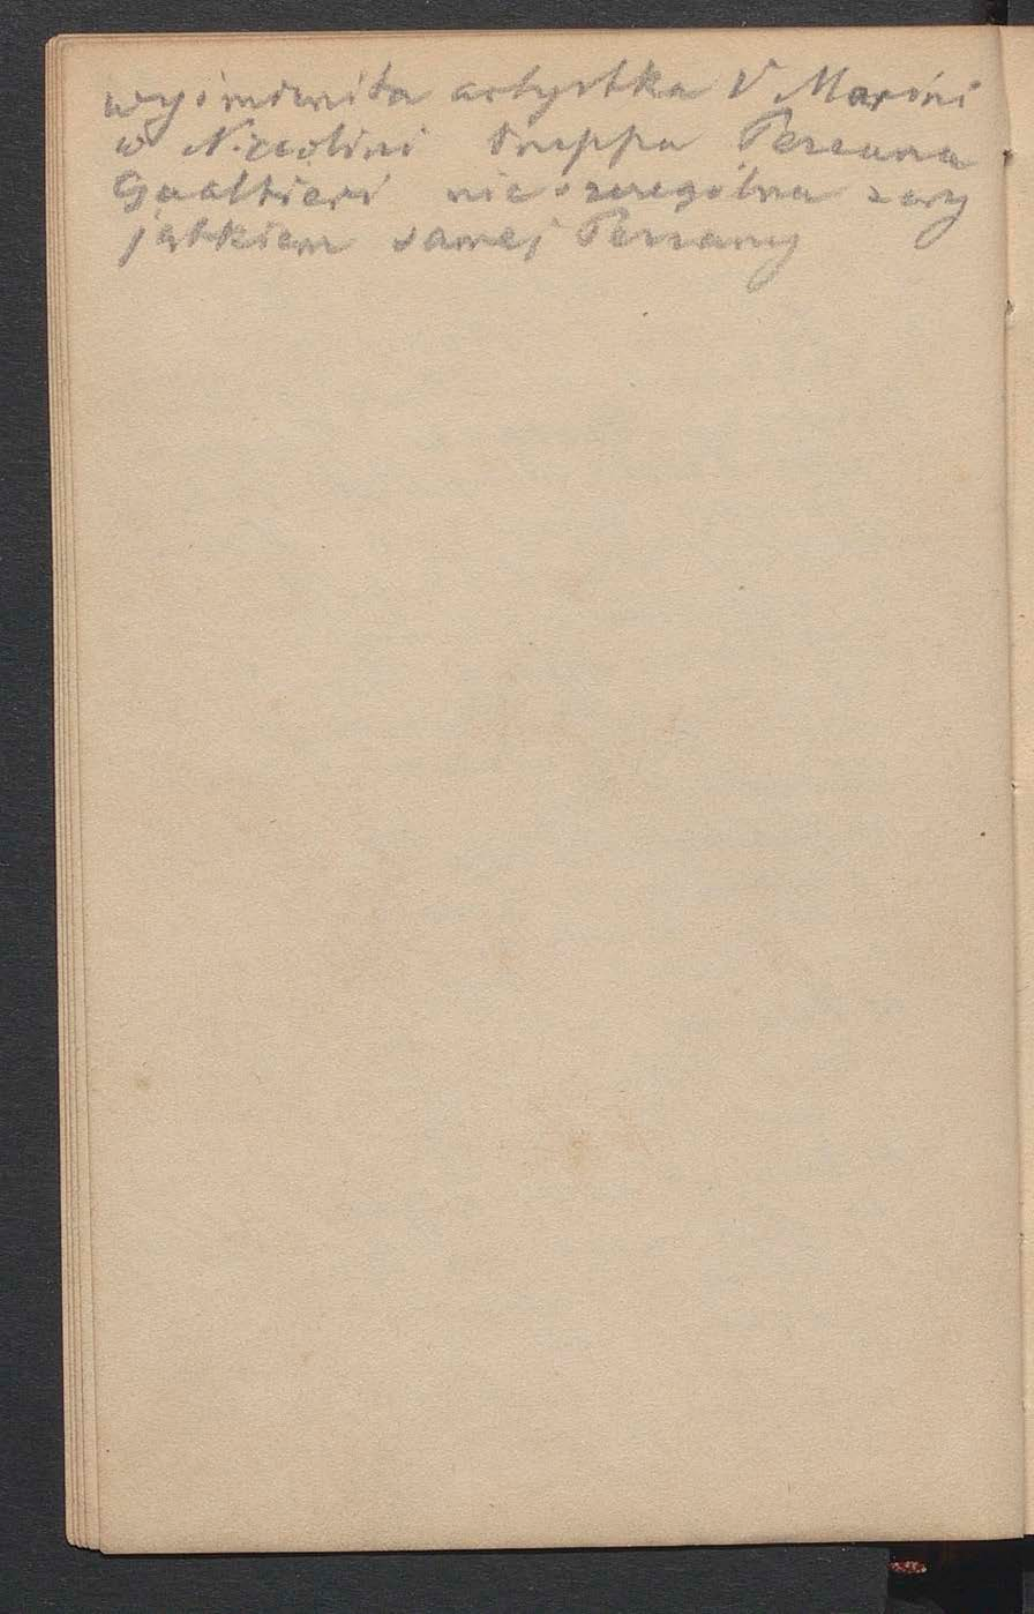 artystka V Marini
w Niccolini truppa Pezzana
Gualtieri nieszczególna z wy
jątkiem samej Pezzany